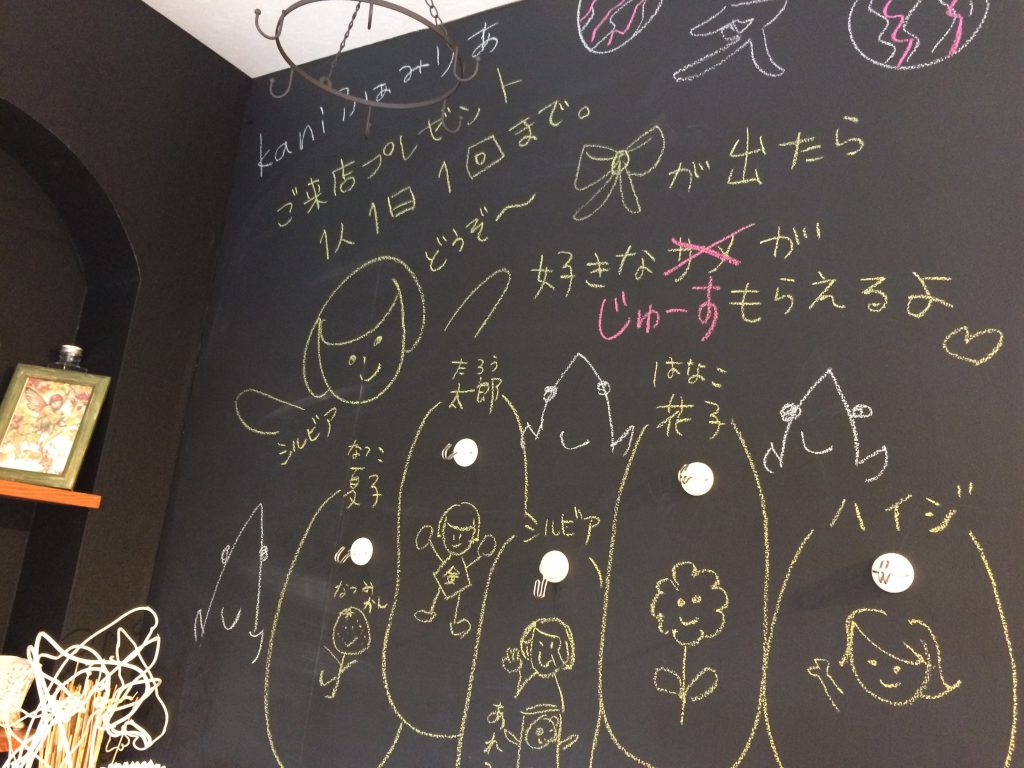 kaniふぁみりあ
ご来店プレゼント
1人1日1回まで。
どうぞ〜
が出たら
好きなサメが
じゅーすもらえるよ
シルビア
たろう
太郎
はなこ
花子
なつこ
夏子
シルビア
ハイジ
なつみかん
金
あれ